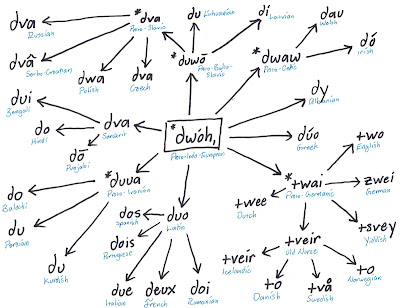 dva
Russian
*dva
Proto-Slavic
du
Lithuanian
dí
Latvian
dau
Welsh
dvâ
Serbo-Croatian
*duwō
Proto-Balto-
Slavic
*dwaw
Proto-Celtic
dó
Irish
dwa
Polish
dva
Czech
dui
Bengali
dy
Albanian
dva
Sanskrit
do
Hindi
dō
Punjabi
*dwóh₁
Proto-Indo-European
dúo
Greek
two
English
*duua
Proto-Iranian
*twai
Proto-Germanic
zwei
German
do
Balochi
dos
Spanish
duo
Latin
twee
Dutch
du
Persian
dois
Portugese
tveir
Old Norse
tsvey
Yiddish
du
Kurdish
tveir
Icelandic
to
Norwegian
due
Italian
deux
French
doi
Romanian
to
Danish
två
Swedish